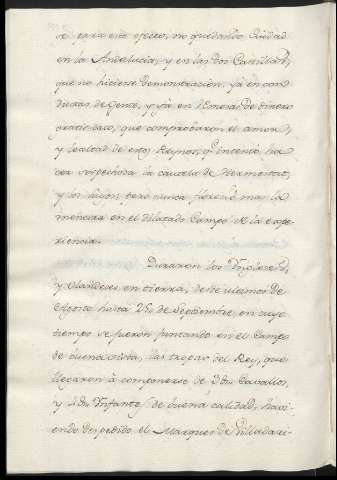 se para este efecto, no quedando Ciudad
en la Andalucia, y en las dos Castillas,
que no hiciese demonstracion, ya en con
ductas de Gente, y ya en remesas de dinero
gratuitas, que comprobaron el amor,
y lealtad de estos Reynos, qe intentó ha
cer sospechosa la cautela de
y los suyos, pero nunca florecio mas la
menos en el dilatado Campo de la expe
riencia.
Duraron los Yngleses,
y Olandeses en tierra, desde ultimos de
Agosto hasta 25 de Septiembre, en cuyo
tiempo se fueron juntando en el Campo
de buena vista, las tropas del Rey, que
llegaron à componerse de 3 Cavallos,
y Ynfantes de buena calidad, havi
endo despedido el Marques de Villadari-